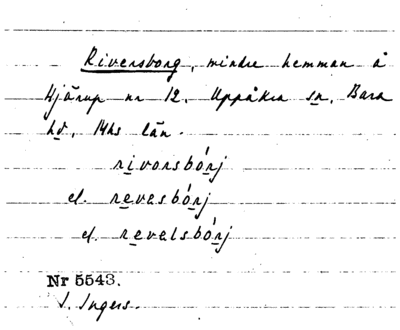 Riversborg, mindre hemman å
Hjärup nr 12. Uppåkra sn, Bara
hd, Mhs län.
rivorsbórj
el. revesbórj
el. revelsbórj
Nr 5543.
I. Ingers.